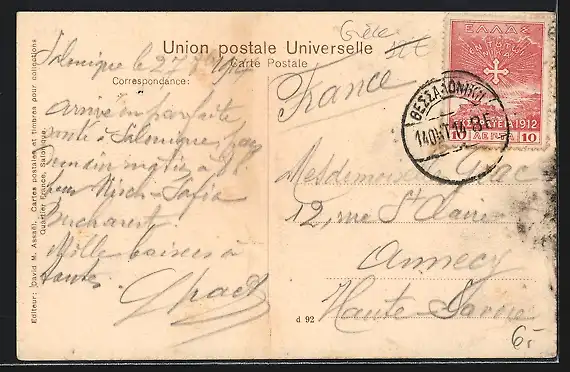 Grèce
Union postale Universelle
Carte Postale
Salonique le 27
Correspondance:
France
Arrivé en parfaite
santé à Salonique,
demain matin à 8h
pour Nisch-Sofia
Bucharest.
Mille baisers à
toutes.
Mesdemoiselles
12, rue St Claire
Annecy
Haute-Savoie
d 92
6.-
Editeur: David M. Assaël, Cartes postales et timbres pour collections
Quartier France, Salonique.
ΕΛΛΑΣ
ΕΝ ΤΟΥΤΩ
ΝΙΚΑ
1912
10 ΛΕΠΤΑ 10
ΘΕΣΣΑΛΟΝΙΚΗ